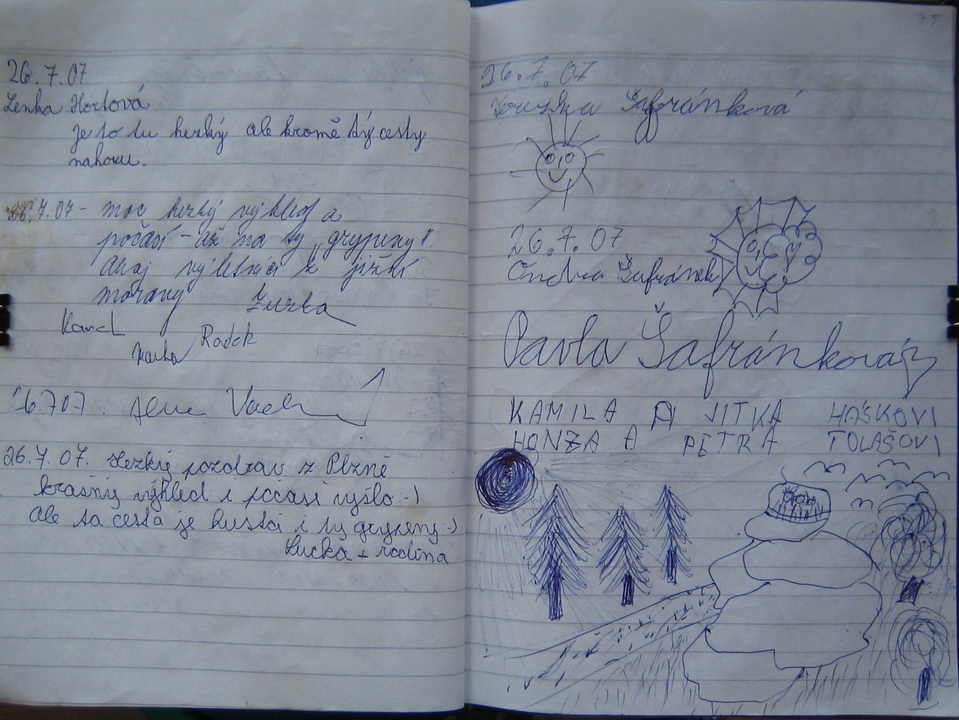 26.7.07
Lenka Hortová
je to tu hezký ale kromě tý cesty
nahoru.
26.7.07 - moc hezký výhled a
počasí - až na ty „grypeny"
Ahoj výletníci z jižní
moravy Zuzka
Karel
Radek
26.707.
26.7.07. Hezký pozdrav z Plzně
krásný výhled i počasí vyšlo :-)
Ale ta cesta je hustá i ty grypeny :-)
Lucka + rodina
26.7.07
Terezka Šafránková
26.7.07
Ondra Šafránek
Pavla Šafránková
KAMILA A JITKA HOŠKOVI
HONZA A PETRA TOLAŠOVI